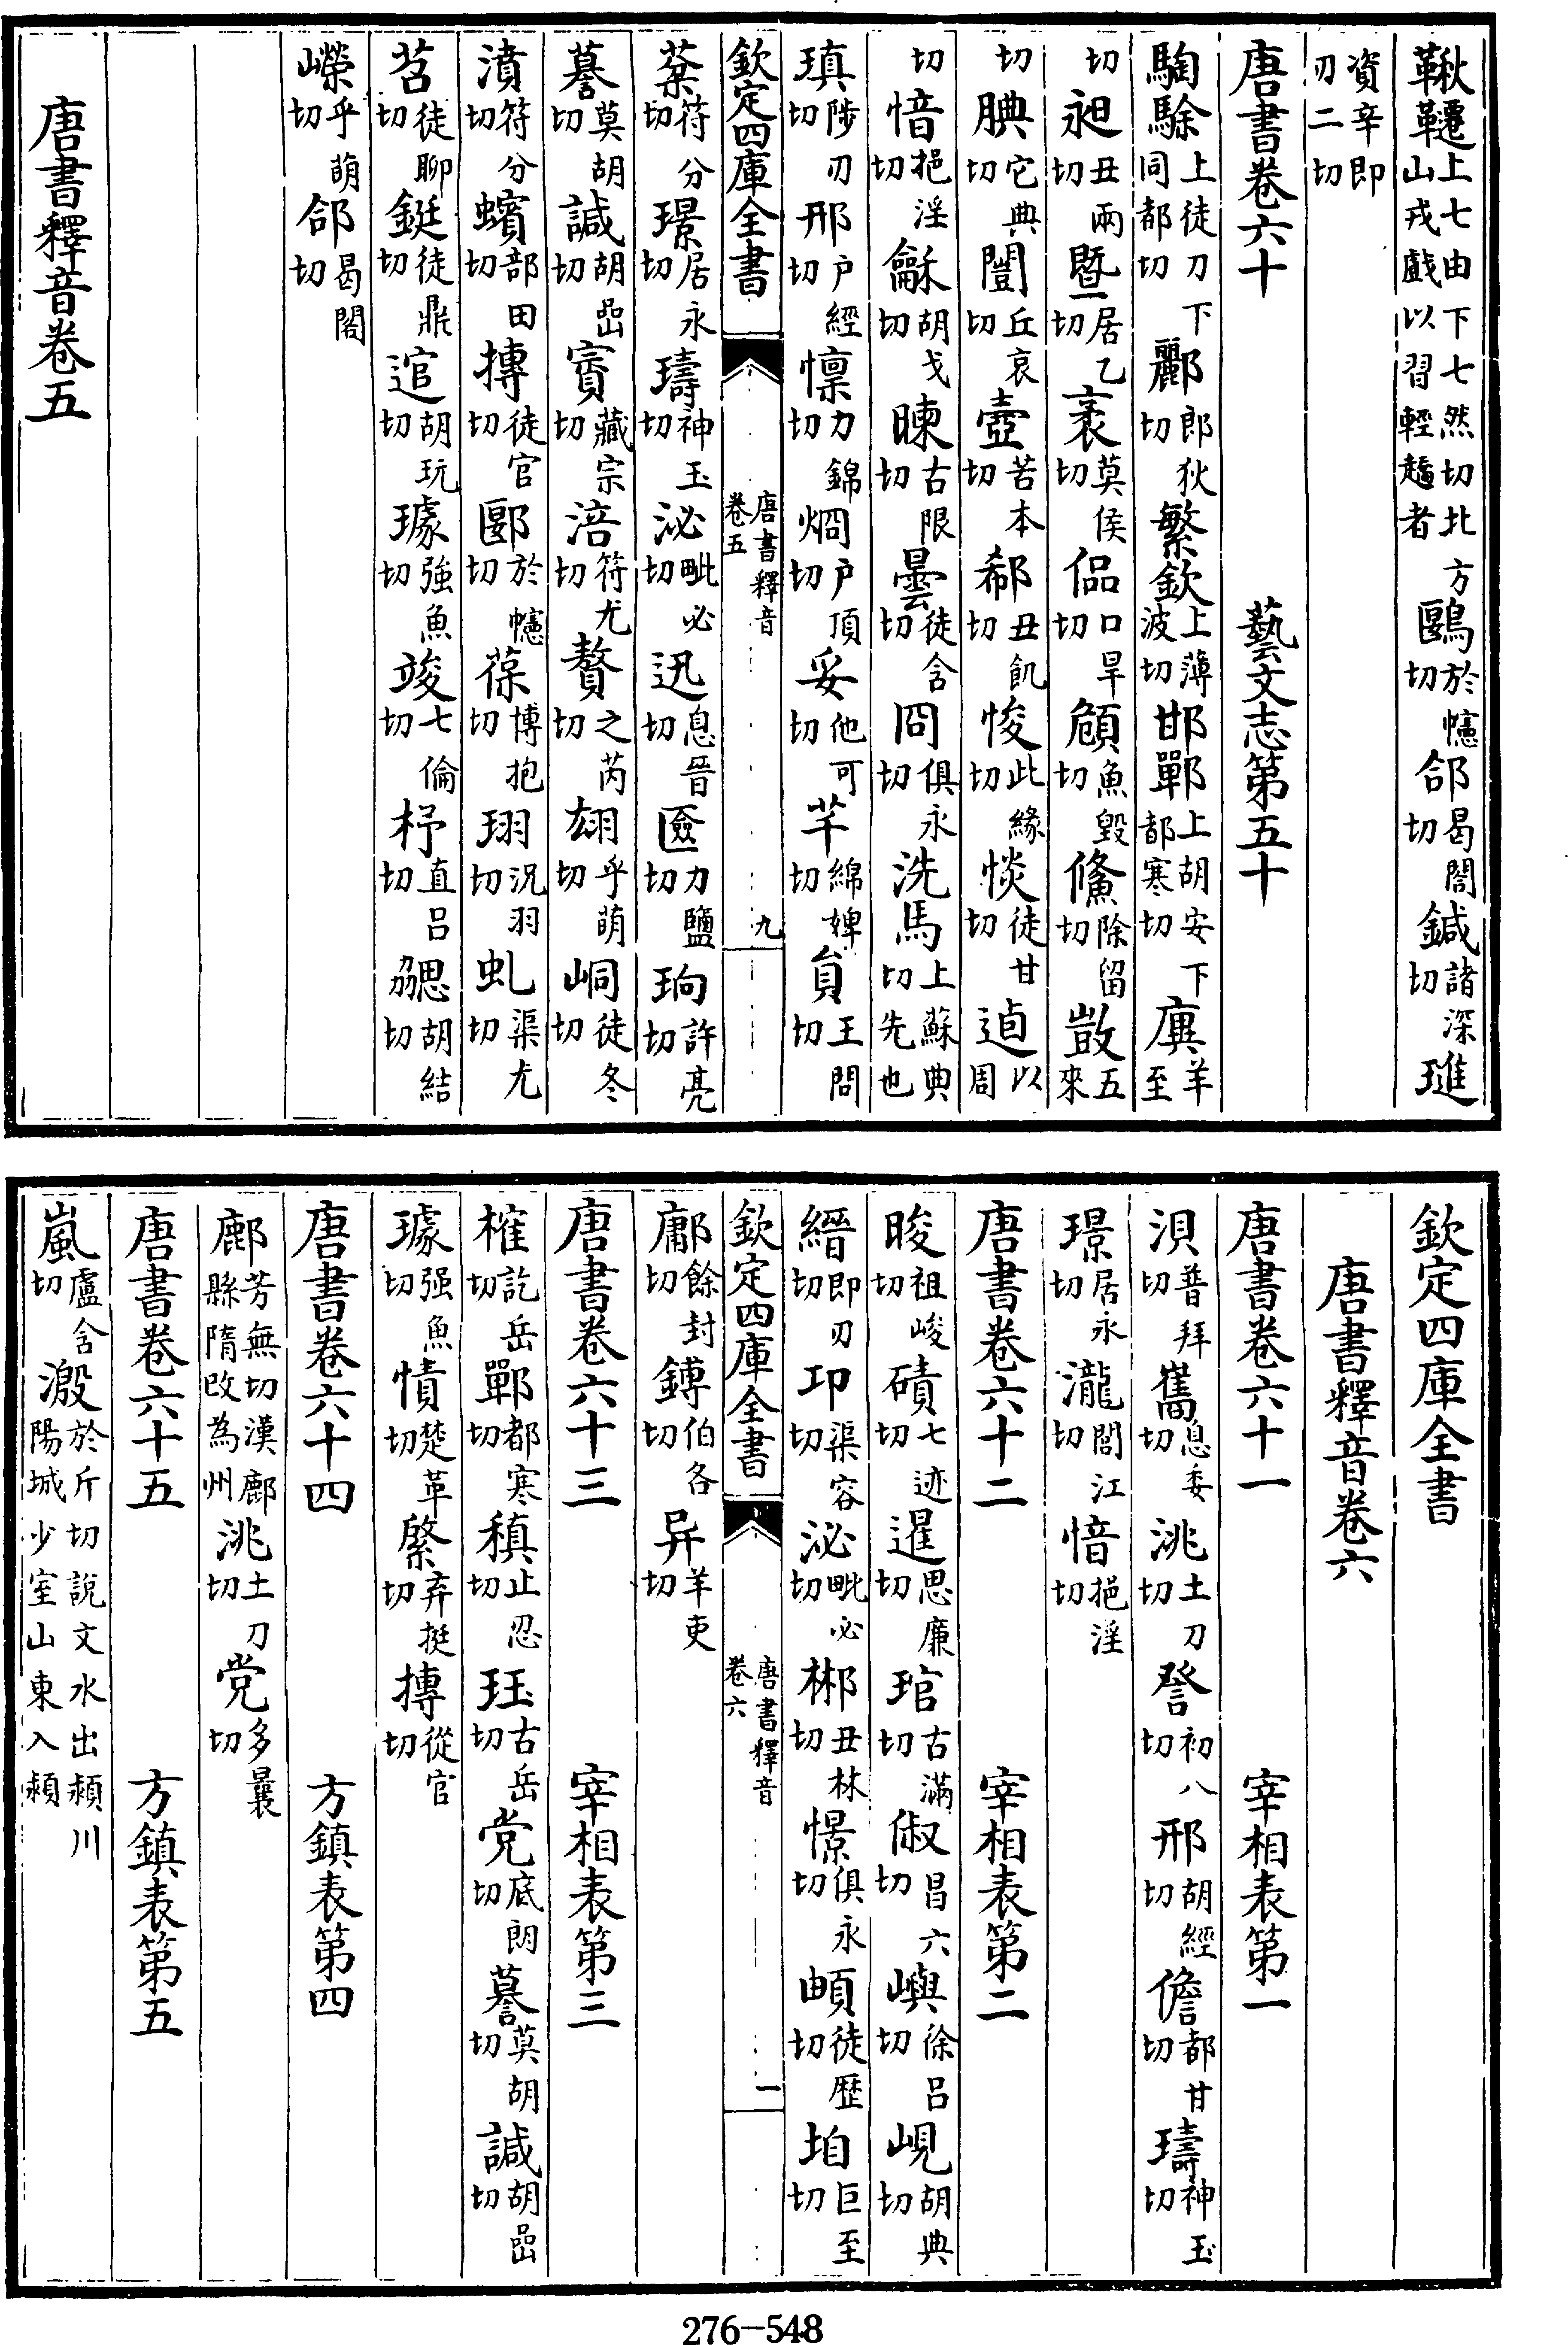 鞦韆上七由下七然切北方山戎戲以習輕趫者鷗於幰切郃曷閤切鍼諸深切璡
資辛即刃二切
唐書卷六十　藝文志第五十
騊駼上徒刀下同都切酈郎狄切繁欽上薄波切邯鄲上胡安下都寒切廙羊至
切昶丑兩切曁居乙切袤莫侯切偘口旱切頠魚毀切鯈除留切敱五來
切腆它典切闓丘哀切壼苦本切郗丑飢切悛此緣切惔徒甘切逌以周
切愔挹淫切龢胡戈切暕古限切曇徒含切冏俱永切洗馬上蘇典切先也
瑱陟刃切邢户經切懍力錦切烱户頂切妥他可切芉綿婢切貟王問切
欽定四庫全書　唐書釋音卷五　九
棻符分切璟居永切璹神玉切泌毗必切迅息晉切匳力鹽切珦許亮切
謩莫胡切諴胡嵒切賨藏宗切涪符尤切贅之芮切翃乎萌切峒徒冬切
濆符分切蠙部田切摶徒官切郾於幰切葆博抱切珝況羽切虬渠尤切
苕徒聊切鋌徒鼎切逭胡玩切璩強魚切竣七倫切杼直吕切勰胡結切
嶸乎萌切郃曷閤切
唐書釋音卷五
欽定四庫全書
唐書釋音卷六
唐書卷六十一　宰相表第一
浿普拜切巂息委切洮土刀切詧初八切邢胡經切儋都甘切璹神玉切
璟居永切瀧閭江切愔挹淫切
唐書卷六十二　宰相表第二
晙祖峻切磧七迹切暹思廉切琯古滿切俶昌六切嶼徐吕切峴胡典切
縉即刃切卭渠容切泌毗必切郴丑林切憬俱永切頔徒歷切垍巨至切
欽定四庫全書　唐書釋音卷六　一
鄘餘封切鎛伯各切异羊吏切
唐書卷六十三　宰相表第三
榷訖岳切鄲都寒切稹止忍切珏古岳切党底朗切謩莫胡切諴胡嵒切
璩强魚切憤楚革切綮弃挺切摶從官切
唐書卷六十四　方鎮表第四
鄜芳無切漢鄜縣隋改為州洮土刀切党多曩切
唐書卷六十五　方鎮表第五
嵐盧含切濦於斤切說文水出潁川陽城少室山東入潁
276-548